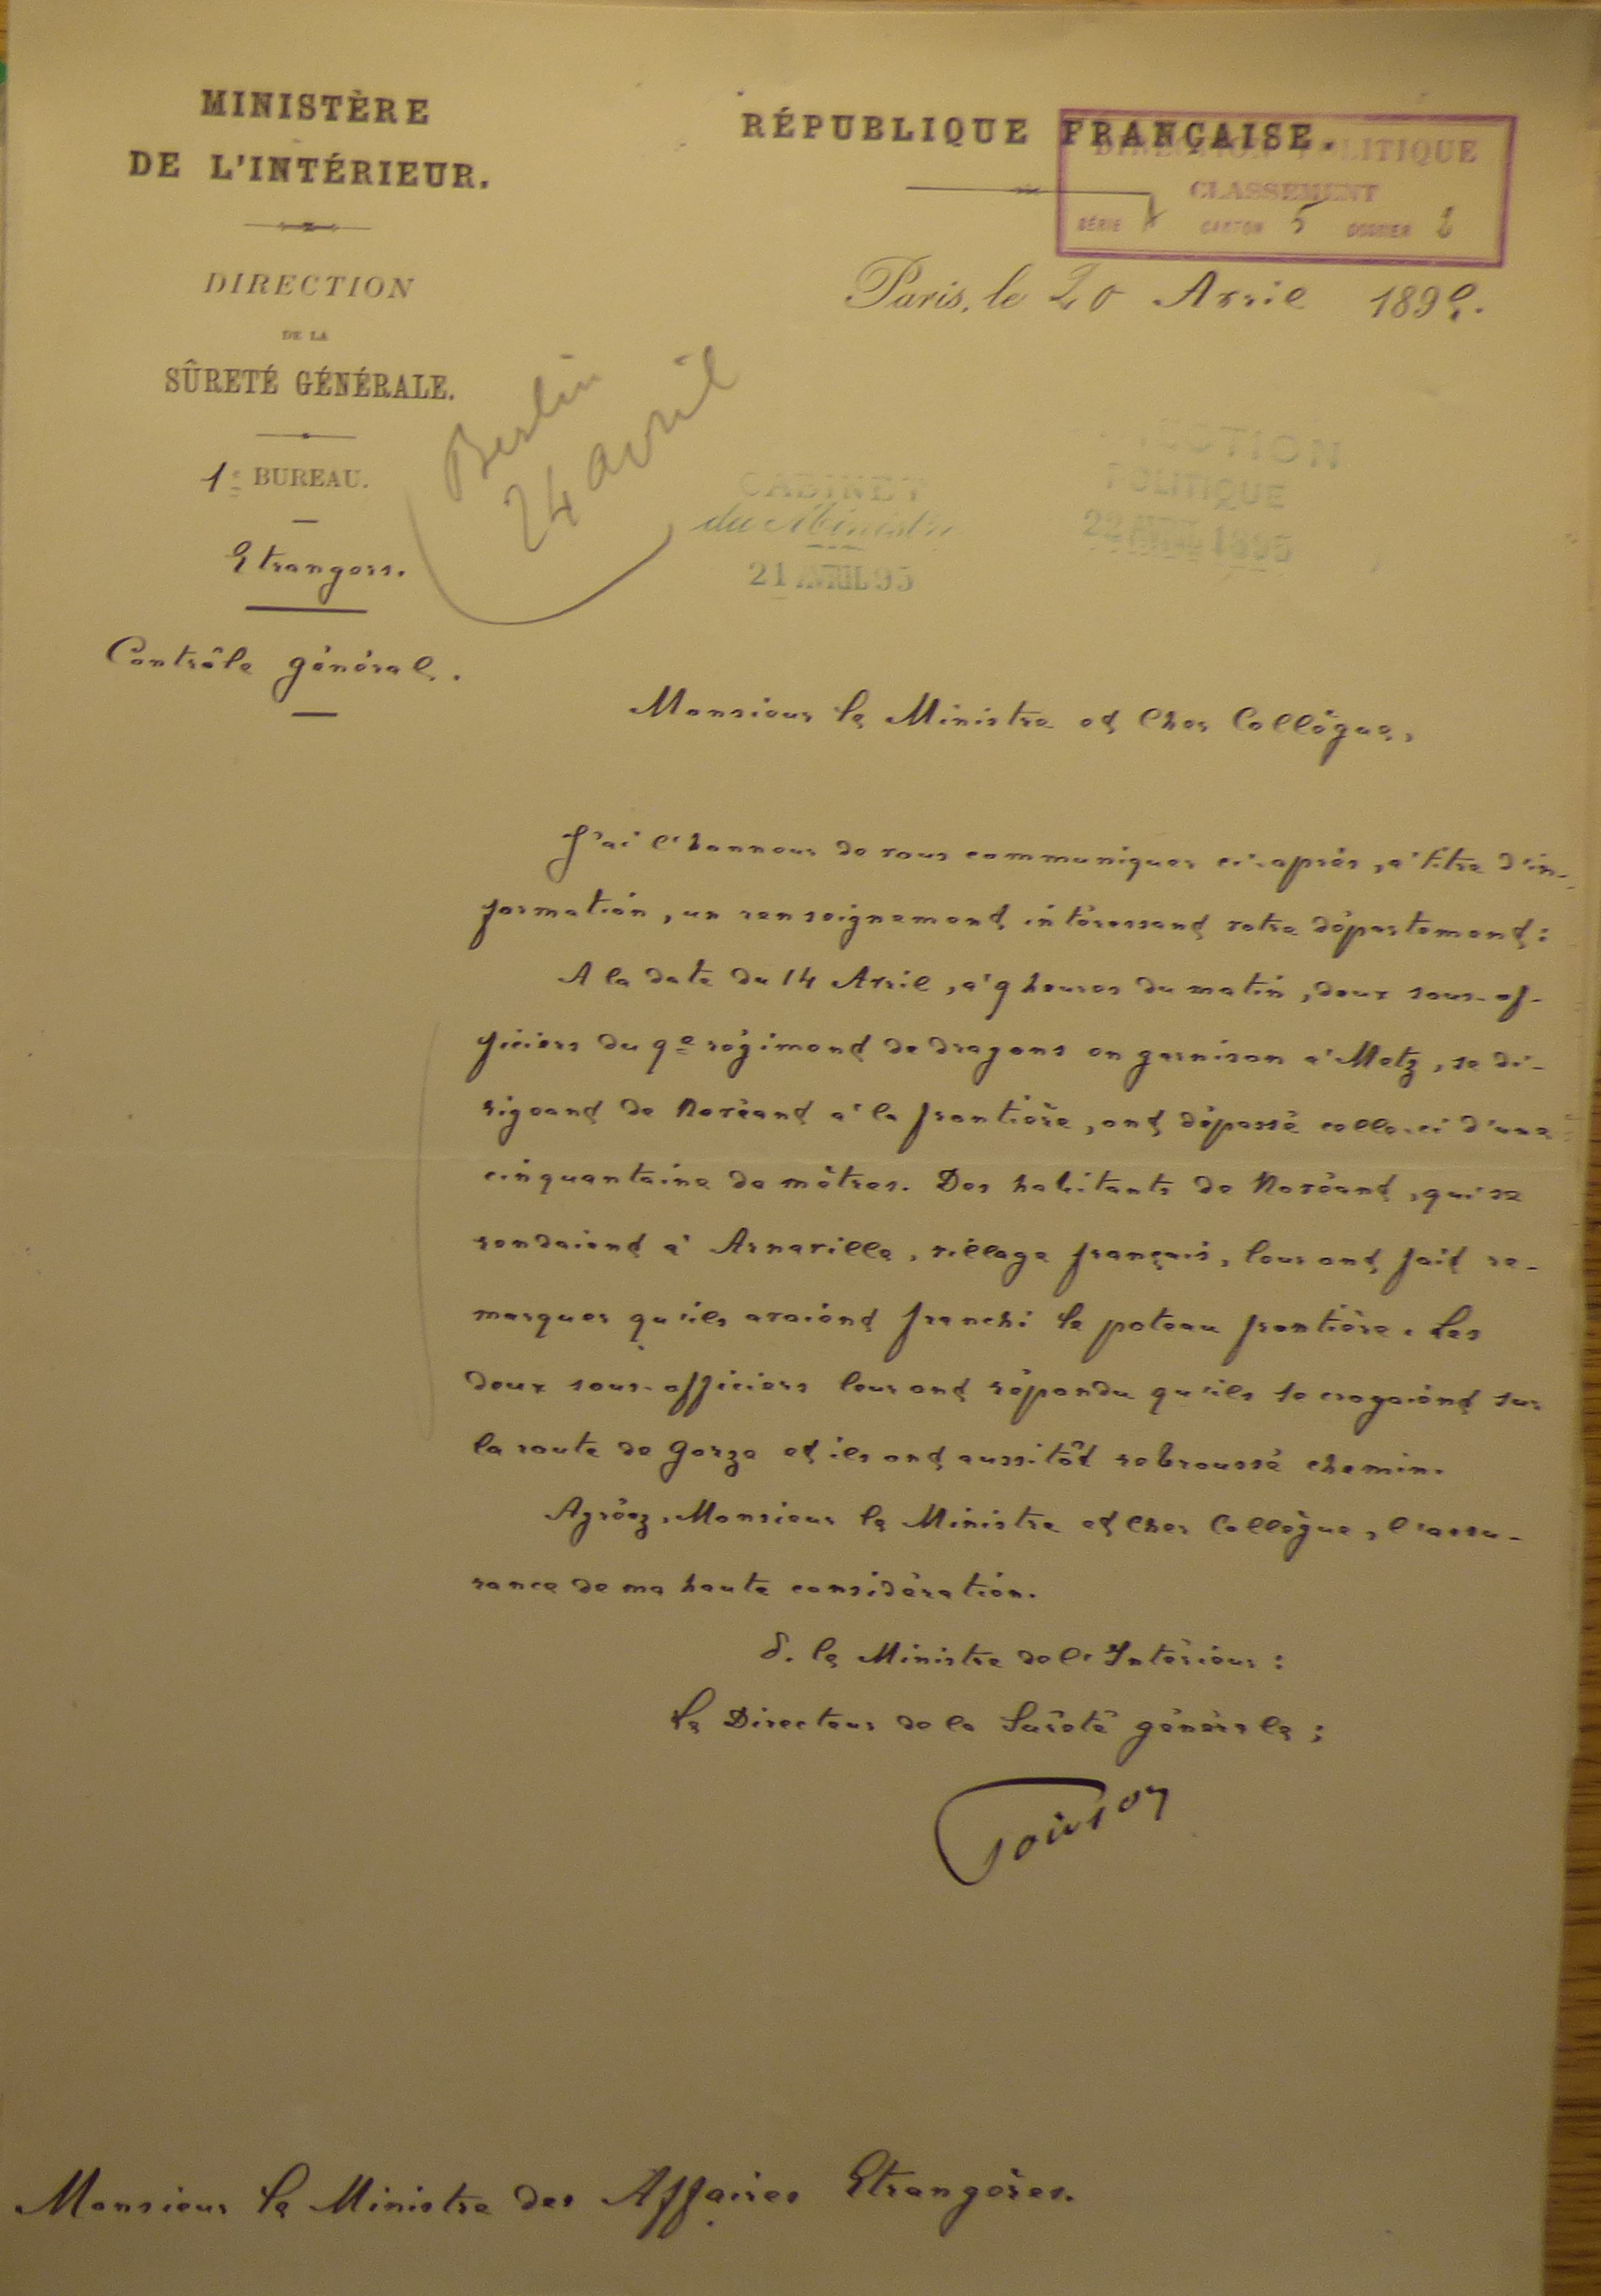 MINISTÈRE
DE L'INTÉRIEUR.
DIRECTION
DE LA
SÛRETÉ GÉNÉRALE.
1e BUREAU.
Etrangers.
Contrôle général.
RÉPUBLIQUE FRANÇAISE.
DIRECTION POLITIQUE
CLASSEMENT
SÉRIE CARTON 5 DOSSIER 2
Paris, le 20 Avril 189
Berlin
24 avril
CABINET
du Ministre
21 AVRIL 95
DIRECTION
POLITIQUE
22 AVRIL 1895
Monsieur le Ministre et Cher Collègue,
J'ai l'honneur de vous communiquer ci-après, à titre d'in-
formation, un renseignement intéressant votre département:
A la date du 14 Avril, à 9 heures du matin, deux sous-of-
ficiers du 9e régiment de dragons en garnison à Metz, se di-
rigeant de Novéant à la frontière, ont dépassé celle-ci d'une
cinquantaine de mètres. Des habitants de Novéant, qui se
rendaient à Arnaville, village français, leur ont fait re-
marquer qu'ils avaient franchi le poteau frontière. Les
deux sous-officiers leur ont répondu qu'ils se croyaient sur
la route de Gorze et ils ont aussitôt rebroussé chemin.
Agréez, Monsieur le Ministre et Cher Collègue, l'assu-
rance de ma haute considération.
P. le Ministre de l'Intérieur:
Le Directeur de la Sûreté générale;
Monsieur le Ministre des Affaires Etrangères.